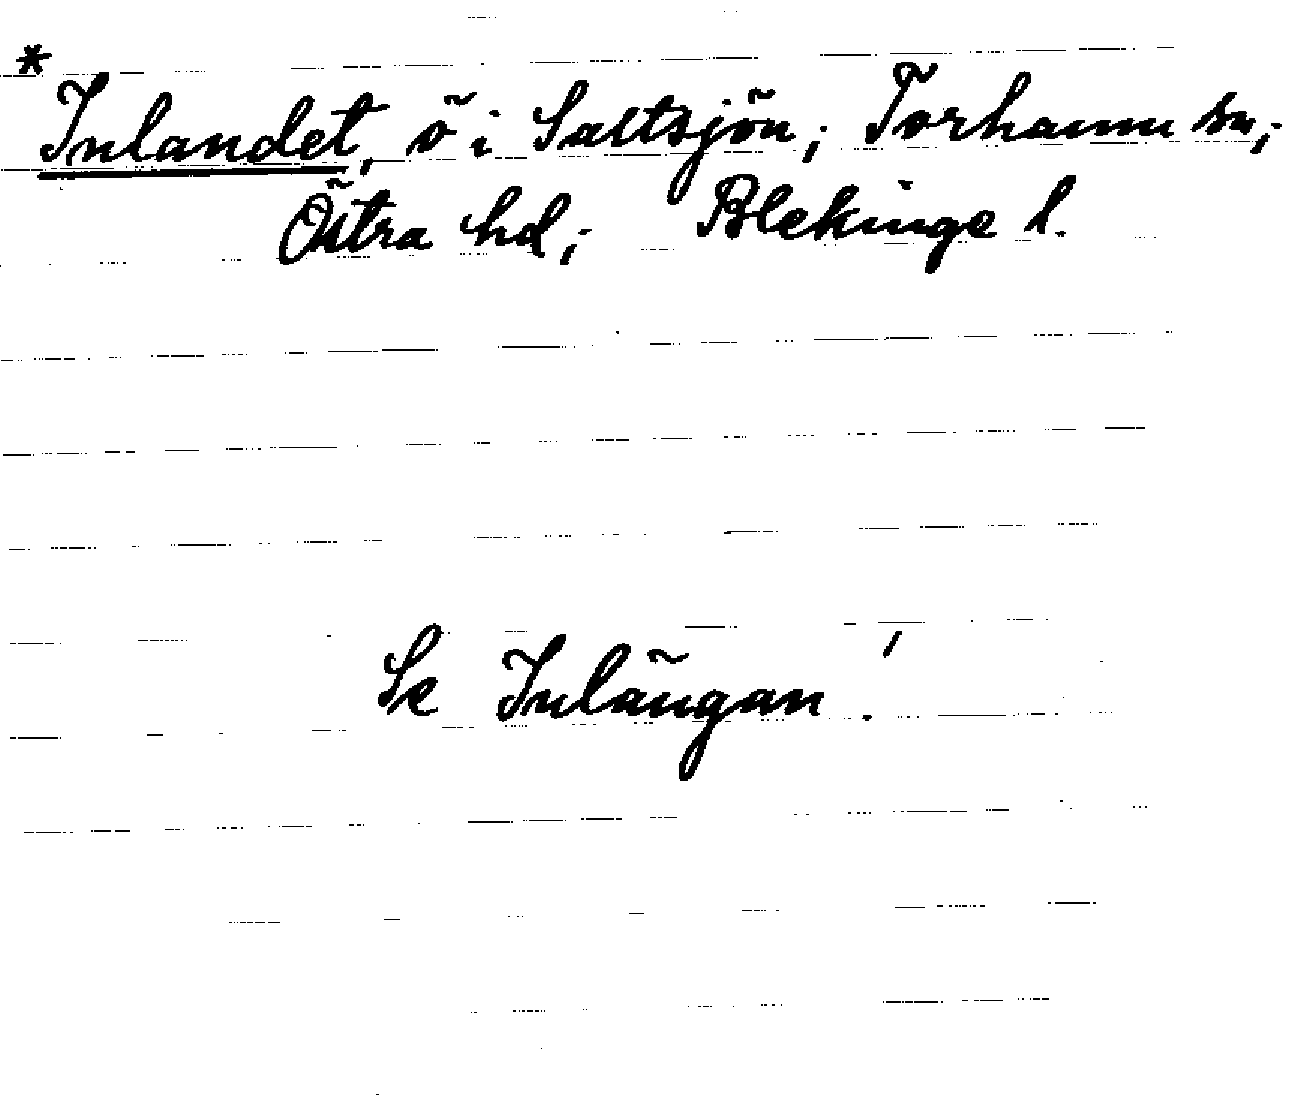 *
Inlandet, ö i Saltsjön; Torhamn sn;
Östra hd; Blekinge l.
Se Inlängan!